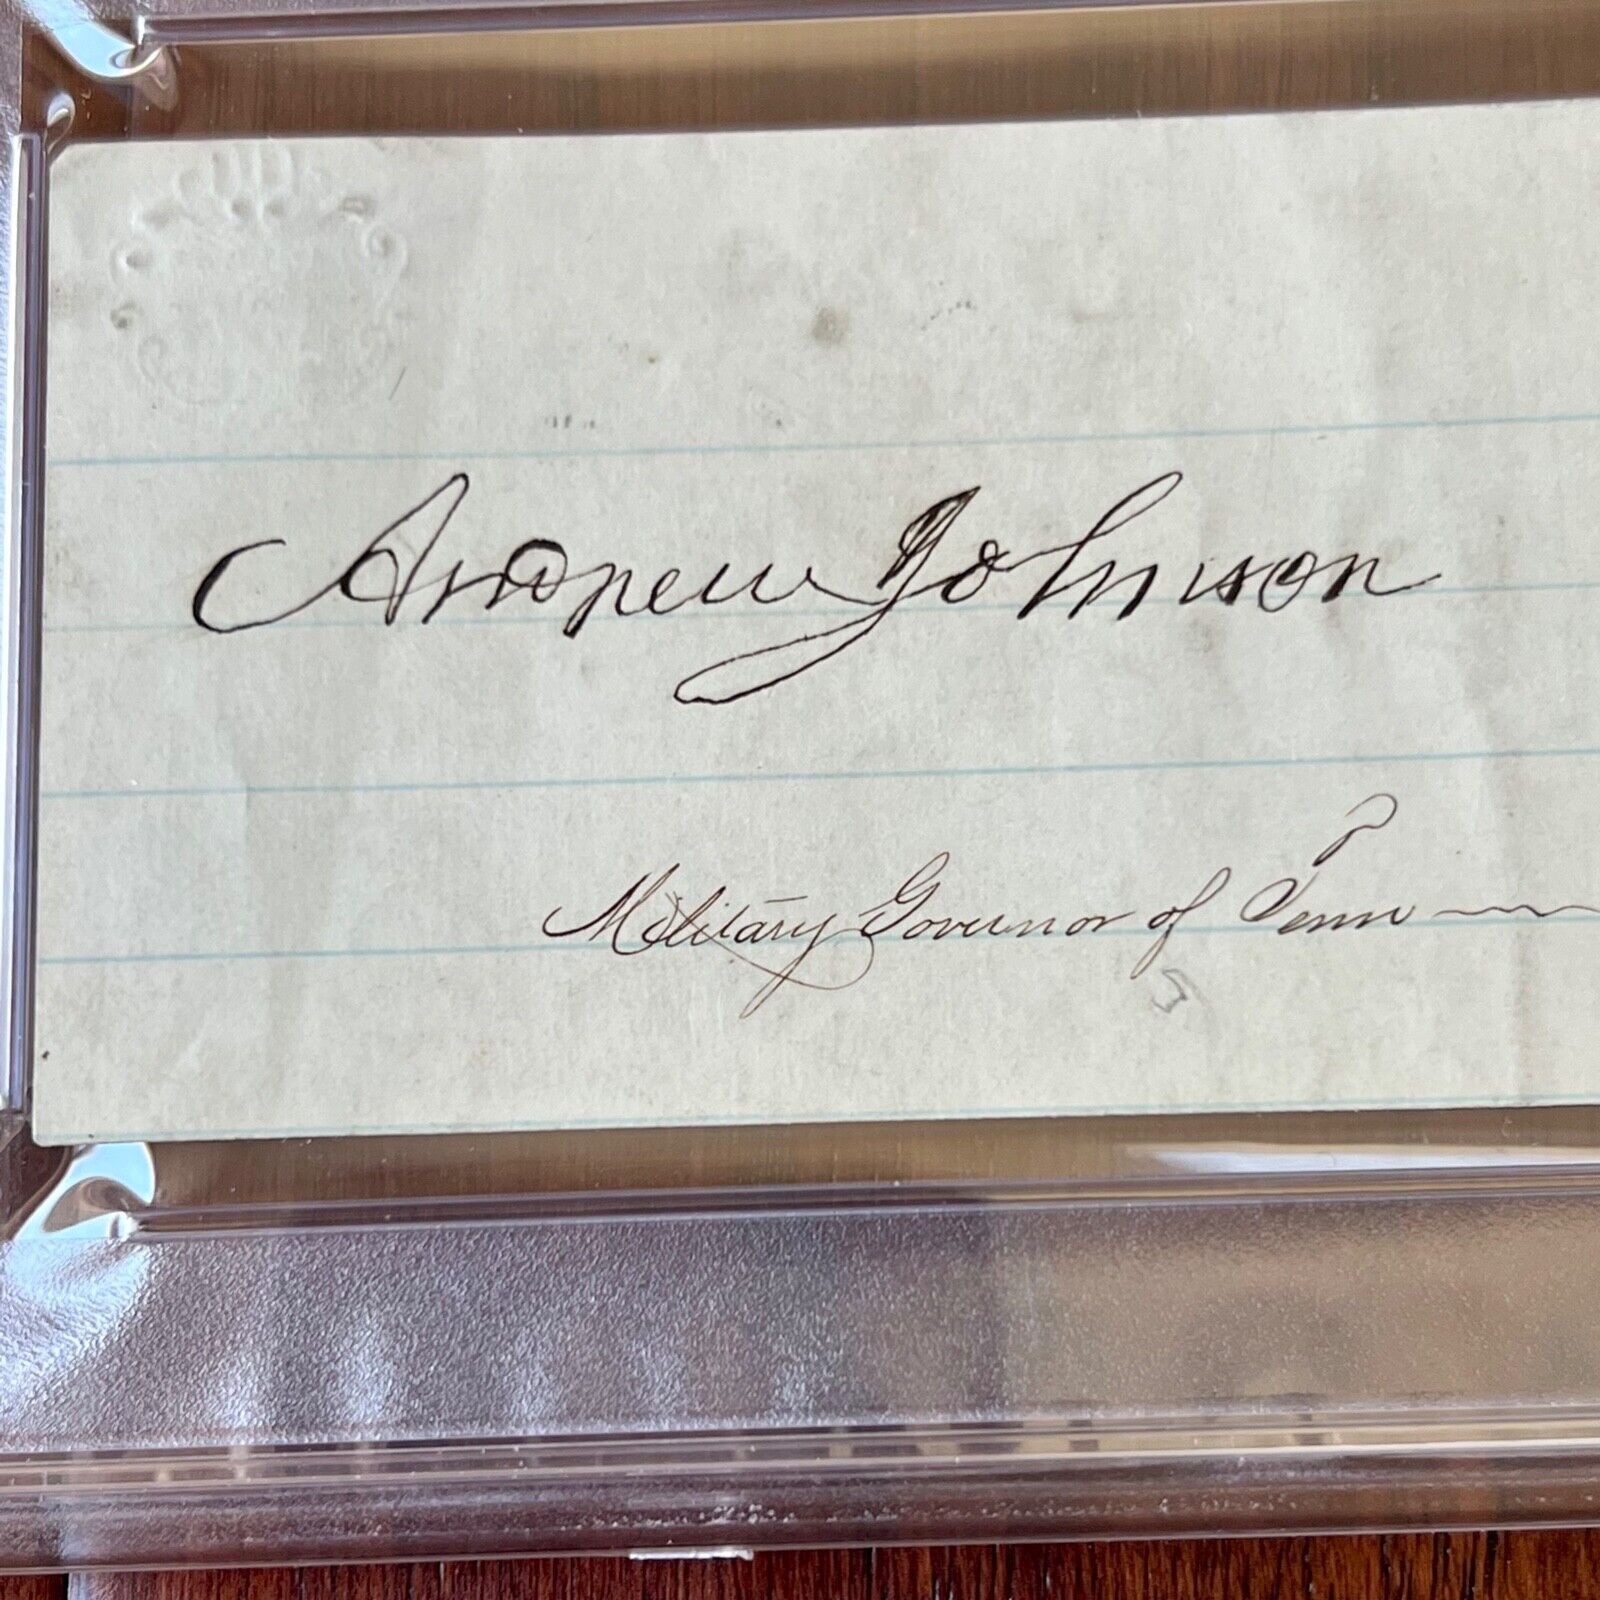 Andrew Johnson
Military Governor of Tenn